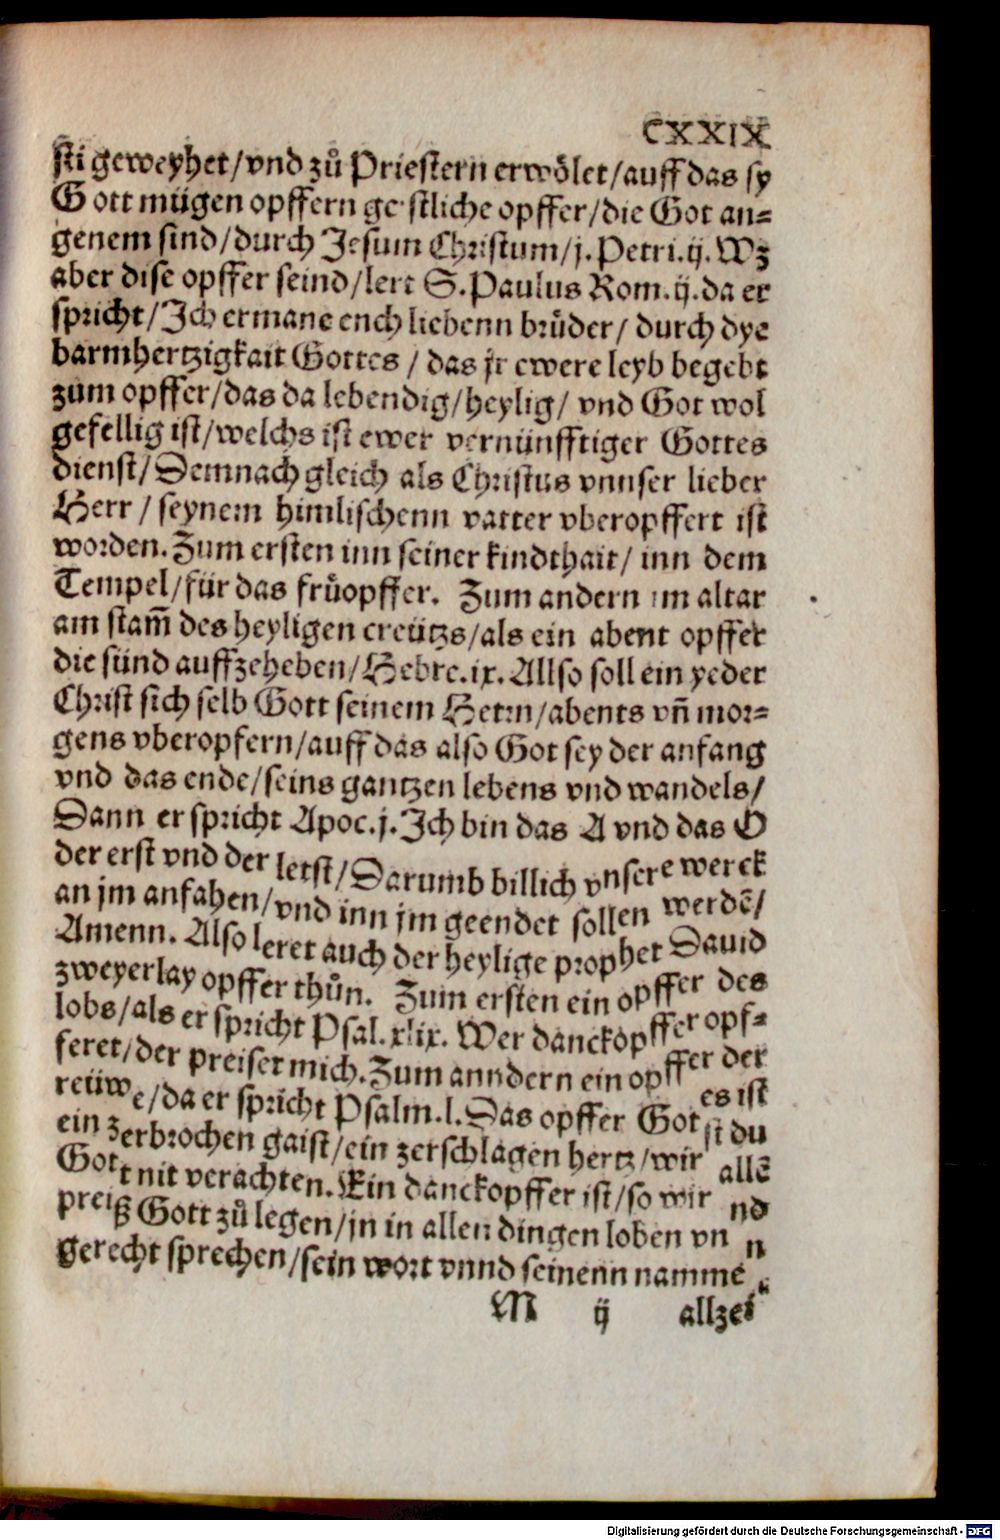 CXXIX
sti geweyhet/vnd zů Priestern erwoͤlet/auff das sy
Gott mügen opffern geistliche opffer/die Got an=
genem sind/durch Jesum Christum/j. Petri.ij. Wz
aber dise opffer seind/lert S. Paulus Rom.ij. da er
spricht/Ich ermane ench liebenn bruͤder/ durch dye
barmhertzigkait Gottes / das jr ewere leyb begebt
zum opffer/das da lebendig/heylig/ vnd Got wol
gefellig ist/welchs ist ewer vernünfftiger Gottes
dienst/Demnach gleich als Christus vnnser lieber
Herr / seynem himlischenn vatter vberopffert ist
worden. Zum ersten inn seiner kindthait/ inn dem
Tempel/für das fruͤopffer. Zum andern im altar
am stam̃ des heyligen creützs/als ein abent opffer
die sünd auffzeheben/Hebre.ix. Allso soll ein yeder
Christ sich selb Gott seinem Herrn/abents vñ mor=
gens vberopfern/auff das also Got sey der anfang
vnd das ende/seins gantzen lebens vnd wandels/
Dann er spricht Apoc.j. Ich bin das A vnd das O
der erst vnd der letst/Darumb billich vnsere werck
an jm anfahen/vnd inn jm geendet sollen werdē/
Amenn. Also leret auch der heylige prophet Dauid
zweyerlay opffer thůn. Zum ersten ein opffer des
lobs/als er spricht Psal.xlix. Wer danckopffer opf=
feret/der preiset mich. Zum anndern ein opffer der
reüwe/da er spricht Psalm.l. Das opffer Gotes ist
ein zerbrochen gaist/ein zerschlagen hertz/wirst du
Gott nit verachten. Ein danckopffer ist/so wir allē
preiß Gott zů legen/jn in allen dingen loben vnnd
gerecht sprechen/sein wort vnnd seinenn nammen
M ij allzeit
Digitalisierung gefördert durch die Deutsche Forschungsgemeinschaft - DFG